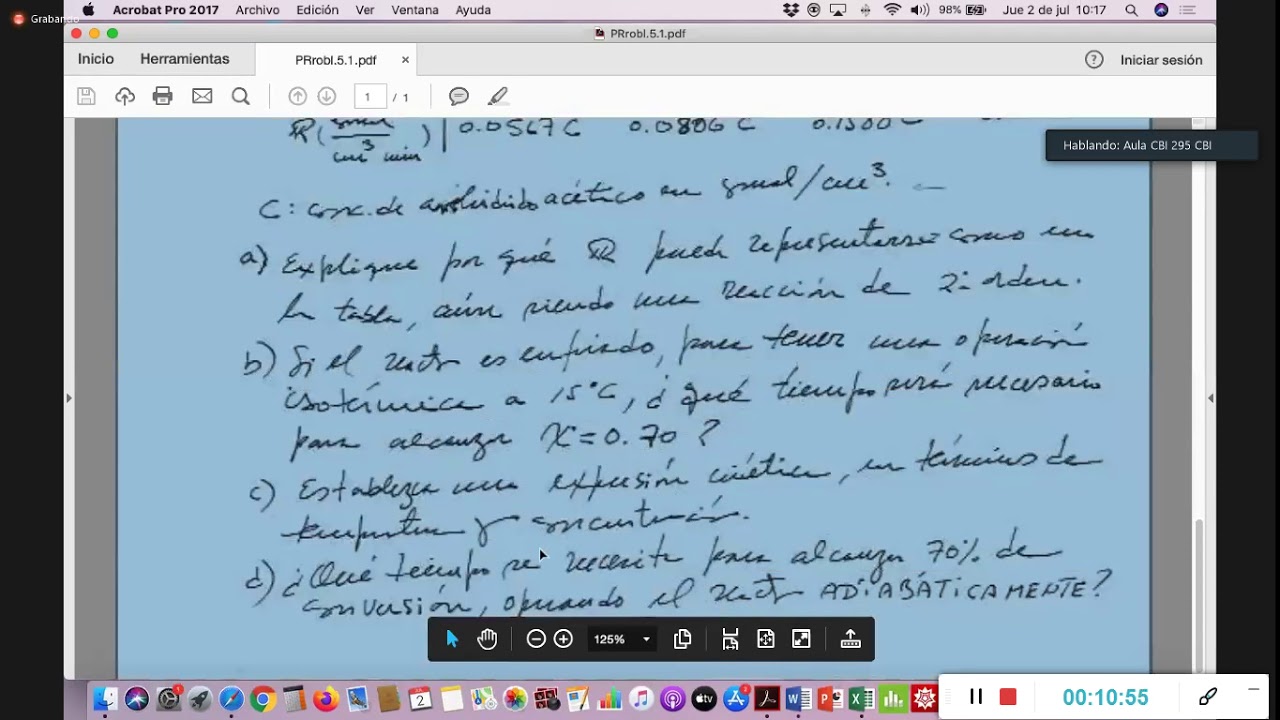 Grabando
Acrobat Pro 2017 Archivo Edición Ver Ventana Ayuda 98% Jue 2 de jul 10:17
PRrobl.5.1.pdf
Inicio Herramientas PRrobl.5.1.pdf × ? Iniciar sesión
1 / 1
Hablando: Aula CBI 295 CBI
R (gmol/cm³ min) | 0.0567 C 0.0806 C
C: conc. de anhídrido acético en gmol/cm³.
a) Explique por qué R puede representarse como en
la tabla, aún siendo una reacción de 2º orden.
b) Si el reactor es enfriado, para tener una operación
isotérmica a 15°C, ¿qué tiempo será necesario
para alcanzar X=0.70?
c) Establezca una expresión cinética, en términos de
temperatura y concentración.
d) ¿Qué tiempo se necesita para alcanzar 70% de
conversión, operando el reactor ADIABÁTICAMENTE?
125%
00:10:55